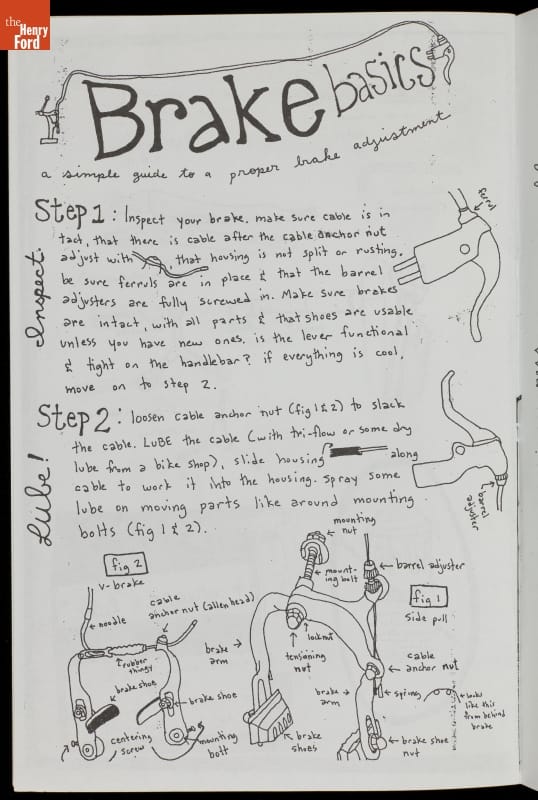 the
Henry
Ford
Brake basics
a simple guide to a proper brake adjustment
Inspect.
Step 1: Inspect your brake. make sure cable is in
tact, that there is cable after the cable anchor nut
adjust with, that housing is not split or rusting.
be sure ferruls are in place & that the barrel
adjusters are fully screwed in. Make sure brakes
are intact, with all parts & that shoes are usable
unless you have new ones. is the lever functional
& tight on the handlebar? if everything is cool,
move on to step 2.
ferrul
Lube!
Step 2: loosen cable anchor nut (fig 1 & 2) to slack
the cable. LUBE the cable (with tri-flow or some dry
lube from a bike shop), slide housing along
cable to work it into the housing. Spray some
lube on moving parts like around mounting
bolts (fig 1 & 2).
barrel
adjuster
fig 2
v-brake
noodle
cable
anchor nut (allen head)
rubber
thingy
brake shoe
brake shoe
centering
screw
mounting
bolt
mounting
nut
mount-
ing bolt
barrel adjuster
fig 1
Side pull
locknut
tensioning
nut
brake
arm
cable
anchor nut
brake
arm
spring
looks
like this
from behind
brake
brake
shoes
brake shoe
nut